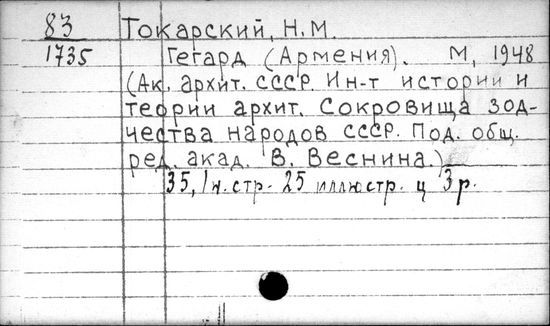 83 Токарский, Н.М.
1735 Гегард (Армения). М, 1948
(Ак. архит. СССР. Ин-т истории и
теории архит. Сокровища зод-
чества народов СССР. Под. общ.
ред. акад. В. Веснина.)
35, 1н. стр. 25 иллюстр. ц 3р.